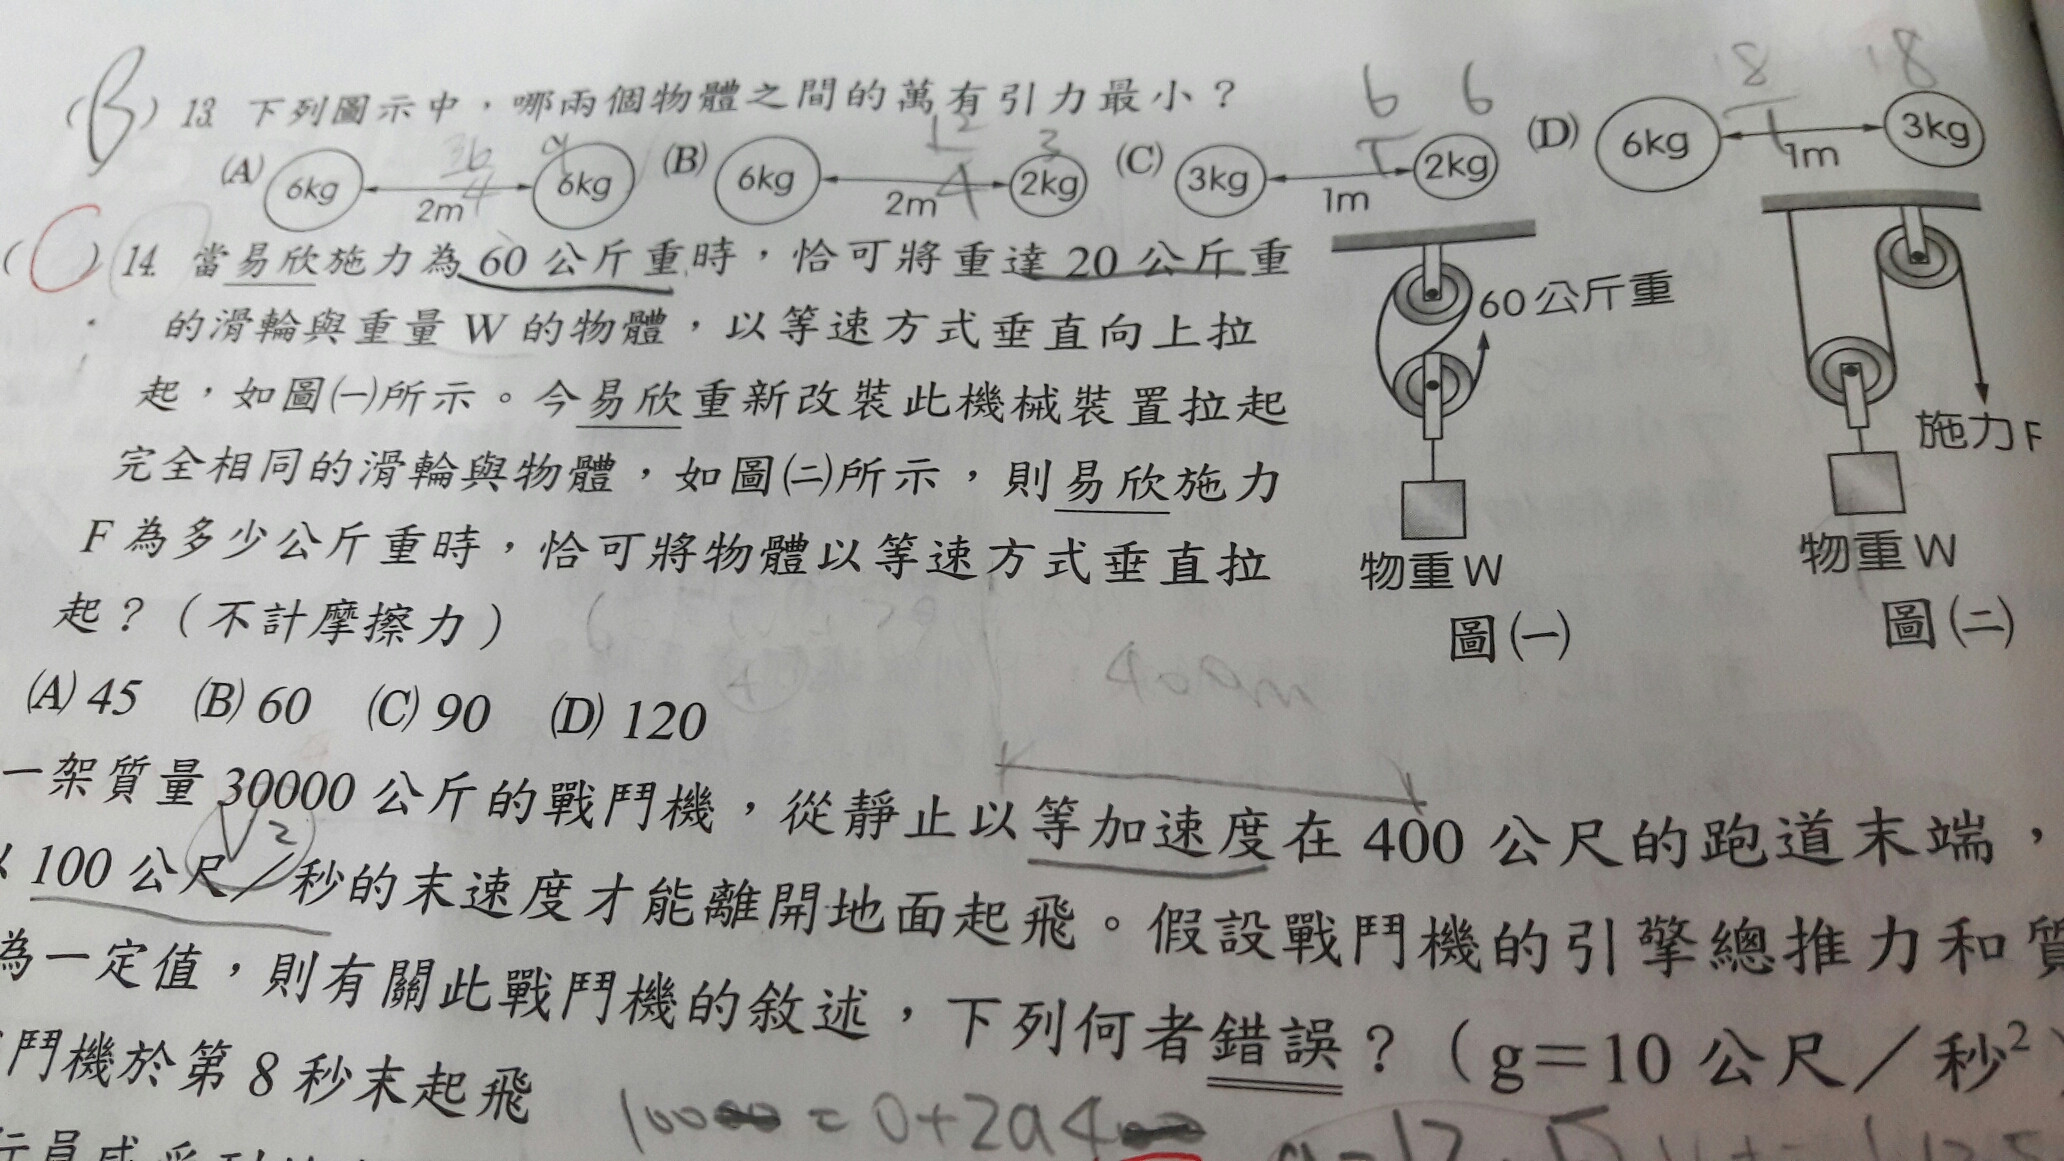 (B) 13. 下列圖示中，哪兩個物體之間的萬有引力最小？
(A) 6kg 2m 6kg (B) 6kg 2m 2kg (C) 3kg 1m 2kg (D) 6kg 1m 3kg
36/4 9 12/4 3 6/1 6 18/1 18
( C ) 14. 當易欣施力為 60 公斤重時，恰可將重達 20 公斤重
的滑輪與重量 W 的物體，以等速方式垂直向上拉
起，如圖㈠所示。今易欣重新改裝此機械裝置拉起
完全相同的滑輪與物體，如圖㈡所示，則易欣施力
F 為多少公斤重時，恰可將物體以等速方式垂直拉
起？（不計摩擦力）
(A) 45 (B) 60 (C) 90 (D) 120
60公斤重
物重W
圖㈠
施力F
物重W
圖㈡
400m
一架質量 30000 公斤的戰鬥機，從靜止以等加速度在 400 公尺的跑道末端，
100 公尺／秒的末速度才能離開地面起飛。假設戰鬥機的引擎總推力和質
V2
為一定值，則有關此戰鬥機的敘述，下列何者錯誤？（g＝10 公尺／秒²
鬥機於第 8 秒末起飛
= 0+2a4